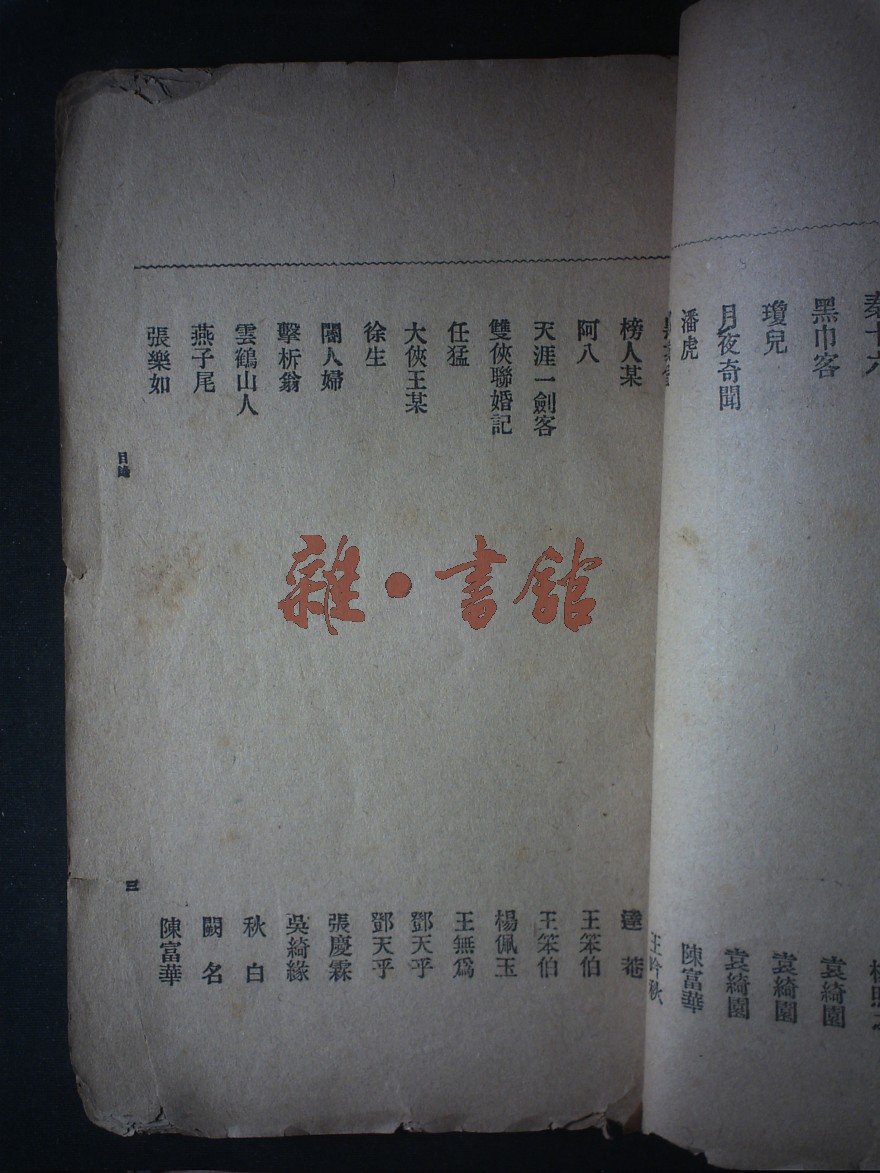 黑巾客 袁綺園
瓊兒 袁綺園
月夜奇聞 袁綺園
潘虎 陳富華
王吟秋
榜人某 達菴
阿八 王笨伯
天涯一劍客 王笨伯
雙俠聯婚記 楊佩玉
任猛 王無爲
大俠王某 鄧天乎
徐生 鄧天乎
閽人婦 張慶霖
擊柝翁 吳綺緣
雲鶴山人 秋白
燕子尾 闕名
張樂如 陳富華
目錄 三
雜·書館